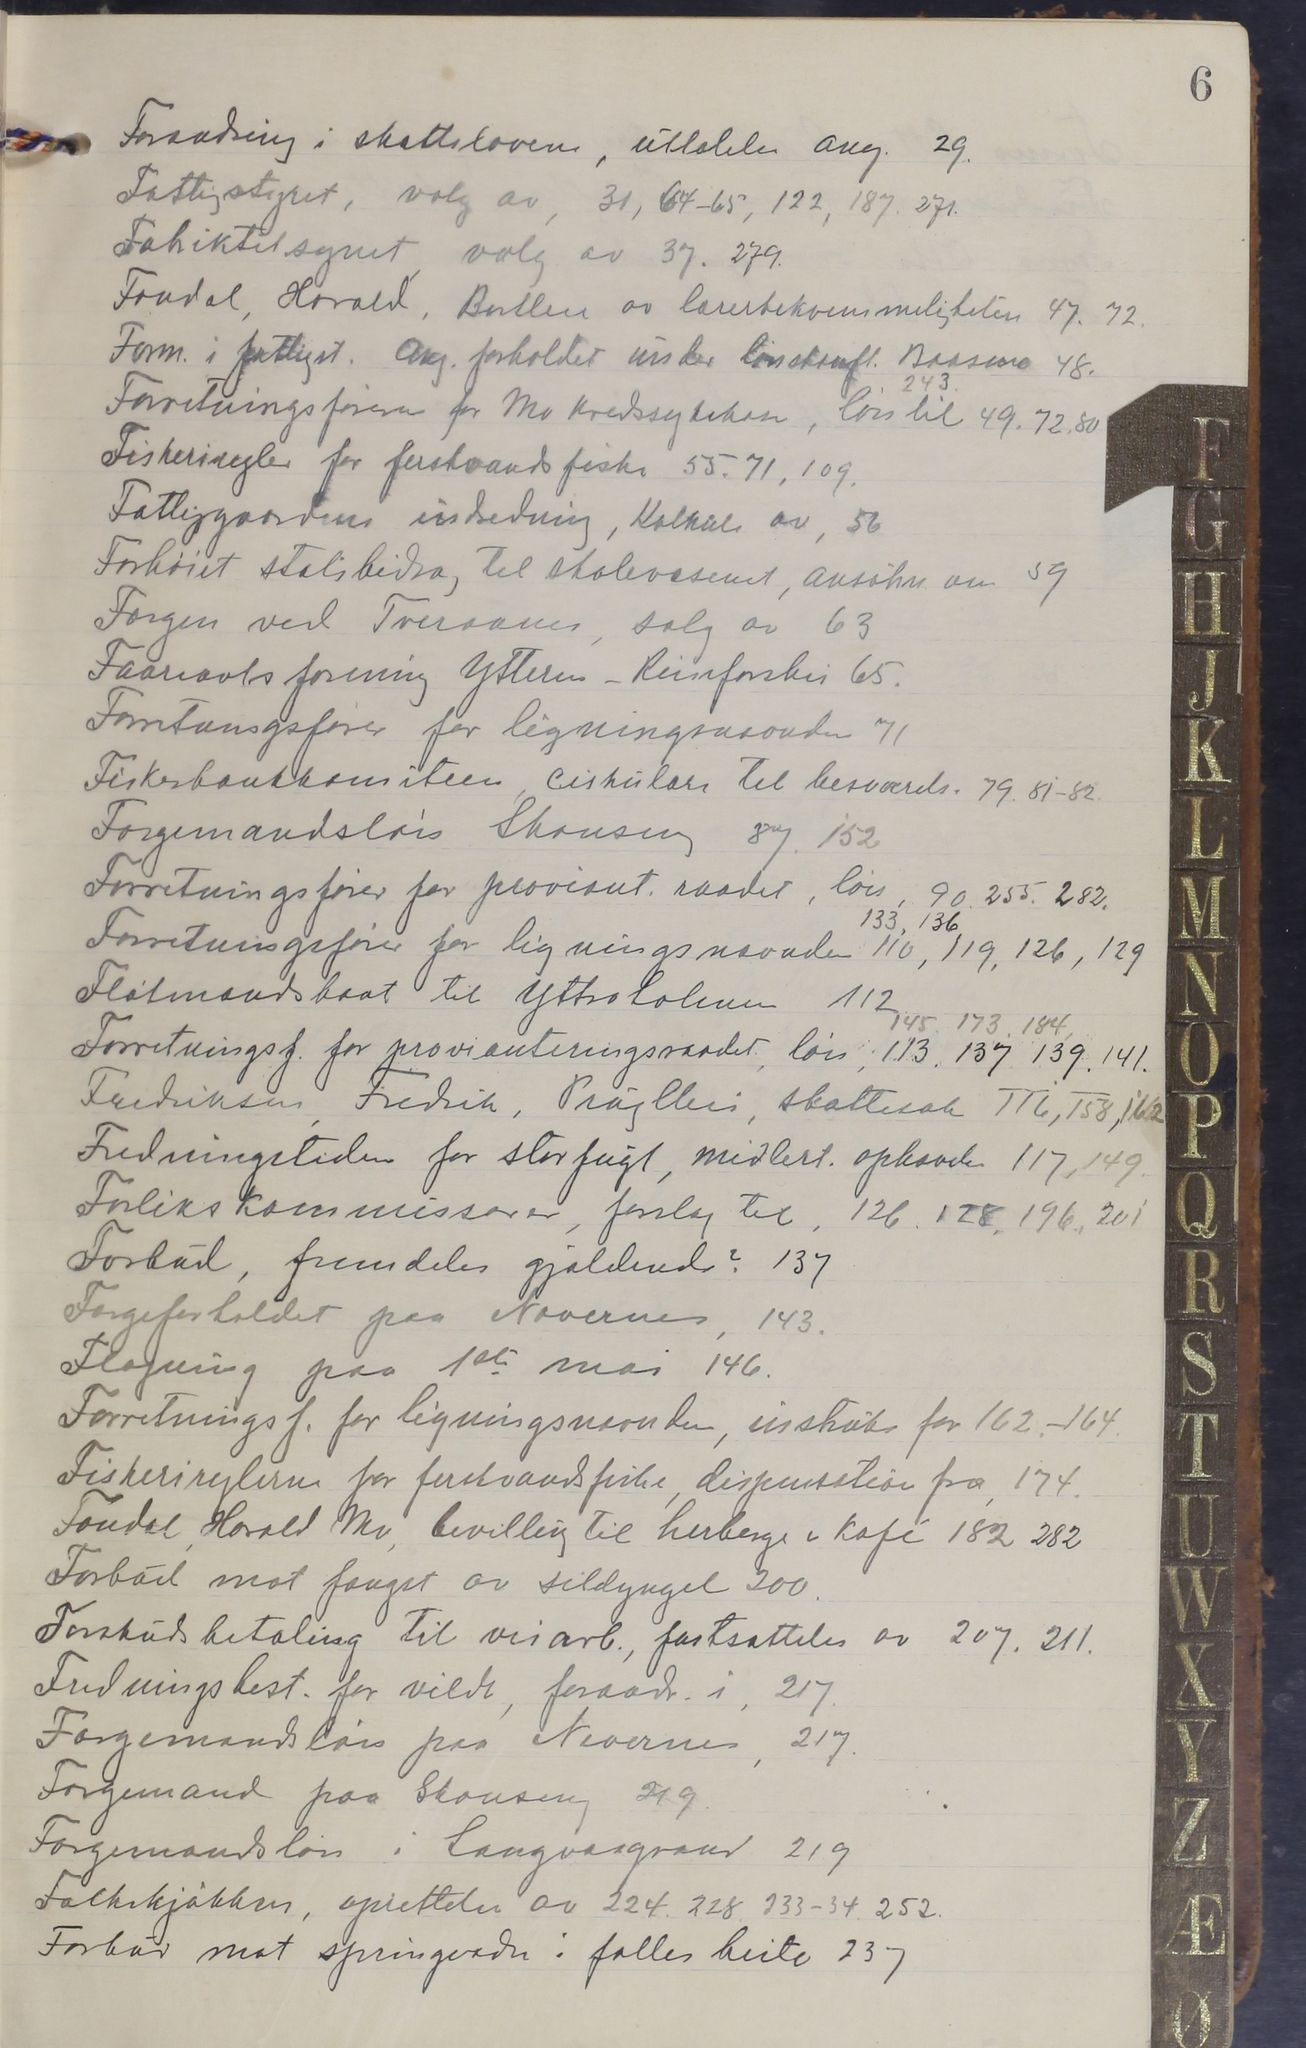 6
Forandring i skatteloven, uttalelse ang. 29.
Fattigstyret, valg av, 31, 64-65, 122, 187. 271.
Fabriktilsynet, valg av 37. 279.
Fondal, Harald, Bortleie av lærerbekvemmeligheten 47. 72.
Form. i fattigst. Ang. forholdet under 48.
243.
Forretningsføreren for Mo kredssykehus, løn til 49. 72. 80
Fiskeriregler for ferskvandsfiske 55. 71, 109.
Fattiggaardens indredning, Kalkule av, 56
Forhøiet statsbidrag til skolevæsenet, ansøkn. om 59
Færgen ved Tveraanes, salg av 63
Faareavlsforening Ytteren - Reinforshei 65.
Forretningsfører for ligningsnævnden 71
Fiskerbankkomiteen, cirkulære til besvarels. 79. 81-82.
Færgemandsløn Skonseng 87. 152
Forretningsfører for proviant. raadet, løn, 90. 255. 282.
133, 136
Forretningsfører for ligningsnævnden 110, 119, 126, 129
Fløtmandsbaat til Yttraholmen 112
145. 173. 184,
Forretningsf. for provianteringsraadet, løn, 113. 137. 139. 141.
Fredriksen, Fredrik, skattesak 116, 158, 162
Fredningstiden for storfugl, midlert. ophævde 117, 149.
Forlikskommissærer, forslag til, 126. 128, 196, 201
Forbud, fremdeles gjældende? 137
Færgeforholdet paa Nævernes, 143.
Flagning paa 1ste mai 146.
Forretningsf. for ligningsnævnden, instruks for 162.-164.
Fiskerireglerne for ferskvandsfiske, dispensation fra, 174.
Fondal, Harald Mo, bevilling til herberge & kafé 182 282
Forbud mot fangst av sildyngel 200.
Forskudsbetaling til veiarb., fastsættelse av 207. 211.
Fredningsbest. for vildt, forandr. i, 217.
Færgemandsløn paa Nævernes, 217.
Færgemand paa Skonseng 219.
Færgemandsløn i Langvasgrend 219
Folkekjøkken, oprettelse av 224. 228. 233-34. 252.
Forbud mot springvædre i fælles beite 237
F
G
H
J
K
L
M
N
O
P
Q
R
S
T
U
W
X
Y
Z
Æ
Ø